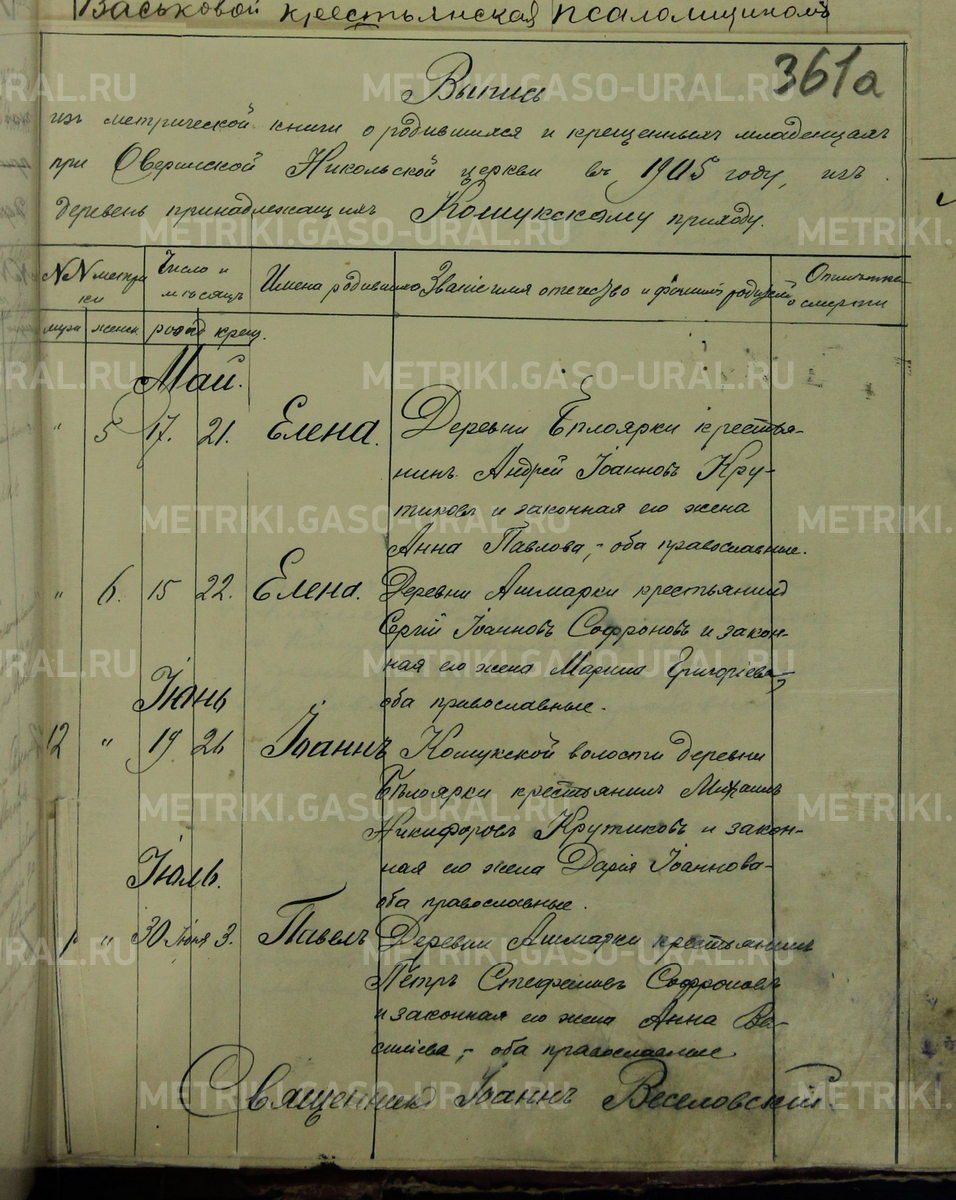 Васьковой крестьянская псаломщикомъ
361а
Выпись
изъ метрической книги о родившихся и крещенныхъ младенцахъ
при Оверинской Никольской церкви въ 1905 году, изъ
деревень принадлежащихъ Кошукскому приходу.
NN метри
ки
Число и
мѣсяцъ
Имена родившихся
Званіе имя отечество и фамилія родителей
Отмѣтка
о смерти
муж
женск
рожд
крещ.
Май.
" 5 17. 21. Елена. Деревни Бѣлоярки крестья-
нинъ Андрей Іоанновъ Кру-
тиковъ и законная его жена
Анна Павлова, - оба православные.
" 6. 15 22. Елена. Деревни Ашмарки крестьянинъ
Сергій Іоанновъ Софроновъ и закон-
ная его жена Марина Григоріева,
оба православные.
Іюнь
12 " 19 26 Іоаннъ Кошукской волости деревни
Бѣлоярки крестьянинъ Михаилъ
Никифоровъ Крутиковъ и закон-
ная его жена Дарія Іоаннова-
оба православные.
Іюль.
" 30 Іюня 3. Павелъ Деревни Ашмарки крестьянинъ
Петръ Стефановъ Софроновъ
и законная его жена Анна Ва-
силіева, - оба православные
Священникъ Іоаннъ Веселовскій.
METRIKI.GASO-URAL.RU